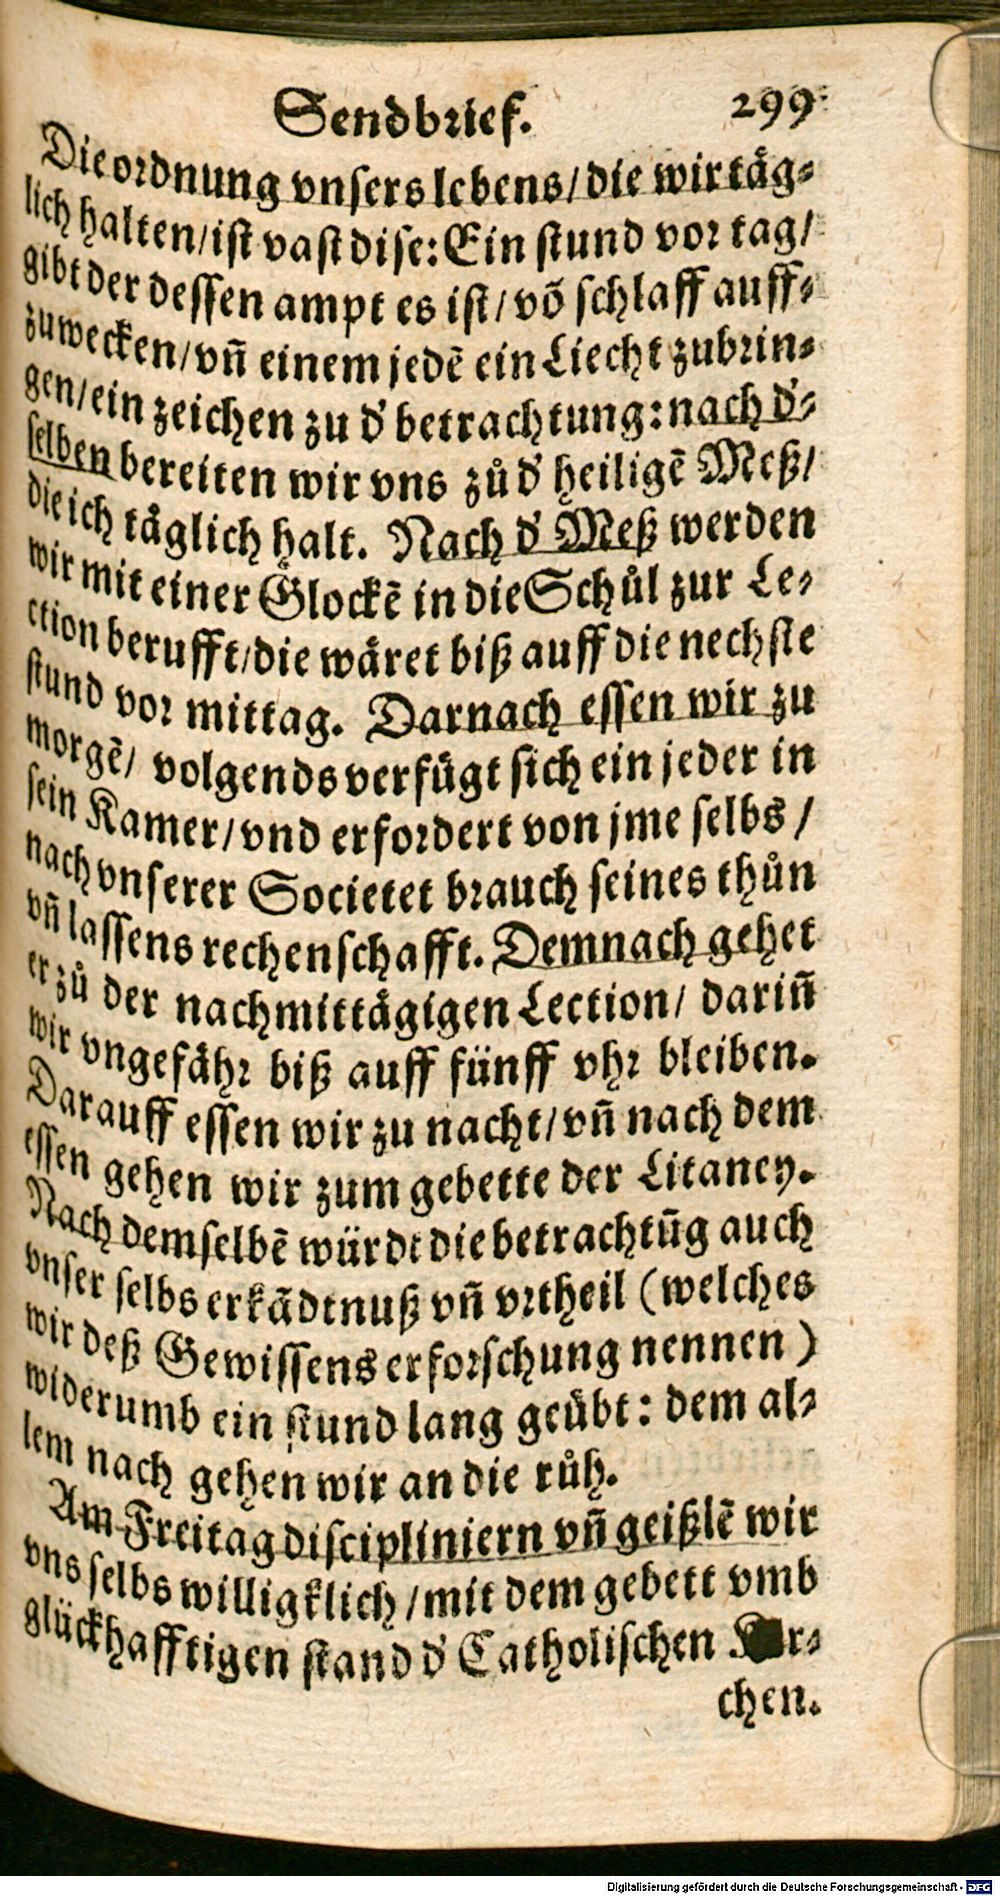 Sendbrief. 299
Die ordnung vnsers lebens/ die wir täg-
lich halten/ ist vast dise: Ein stund vor tag/
gibt der dessen ampt es ist/ võ schlaff auff-
zuwecken/ vñ einem jedẽ ein Liecht zubrin-
gen/ ein zeichen zu d' betrachtung: nach d'-
selben bereiten wir vns zů d' heiligẽ Meß/
die ich täglich halt. Nach d' Meß werden
wir mit einer Glockẽ in die Schůl zur Le-
ction berufft/ die wäret biß auff die nechste
stund vor mittag. Darnach essen wir zu
morgẽ/ volgends verfügt sich ein jeder in
sein Kamer/ vnd erfordert von jme selbs/
nach vnserer Societet brauch seines thůn
vñ lassens rechenschafft. Demnach gehet
er zů der nachmittägigen Lection/ dariñ
wir vngefähr biß auff fünff vhr bleiben.
Darauff essen wir zu nacht/ vñ nach dem
essen gehen wir zum gebette der Litaney.
Nach demselbẽ würdt die betrachtũg auch
vnser selbs erkãdtnuß vñ vrtheil (welches
wir deß Gewissens erforschung nennen)
widerumb ein stund lang geübt: dem al-
lem nach gehen wir an die růh.
Am Freitag discipliniern vñ geißlẽ wir
vns selbs willigklich/ mit dem gebett vmb
glückhafftigen stand d' Catholischen
chen.
Digitalisierung gefördert durch die Deutsche Forschungsgemeinschaft - DFG